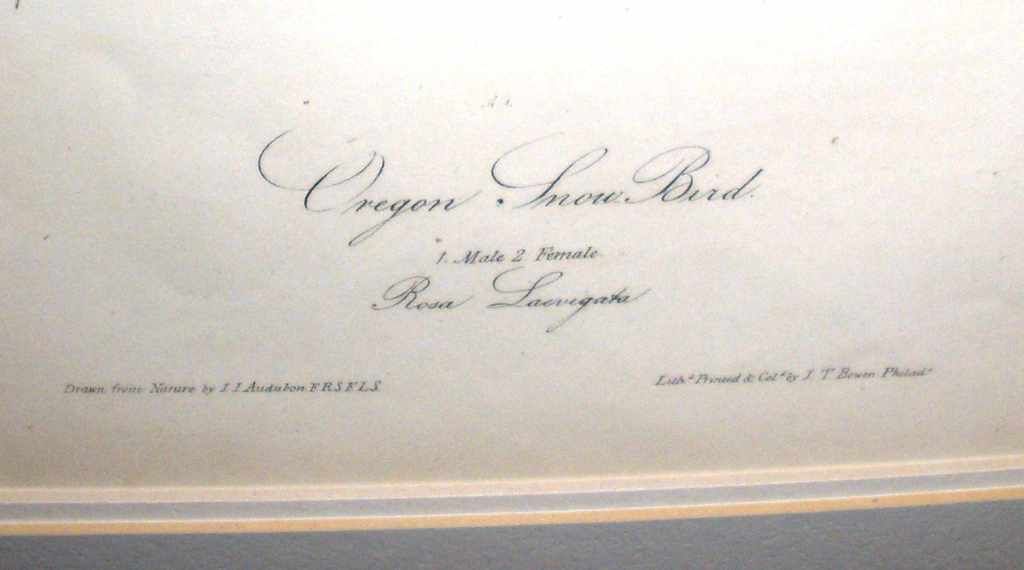 Oregon Snow Bird.
1. Male 2 Female
Rosa Laevigata
Drawn from Nature by J. J. Audubon F.R.S.F.L.S.
Lith.ᵈ Printed & Col.ᵈ by J. T. Bowen Philad.ᵃ